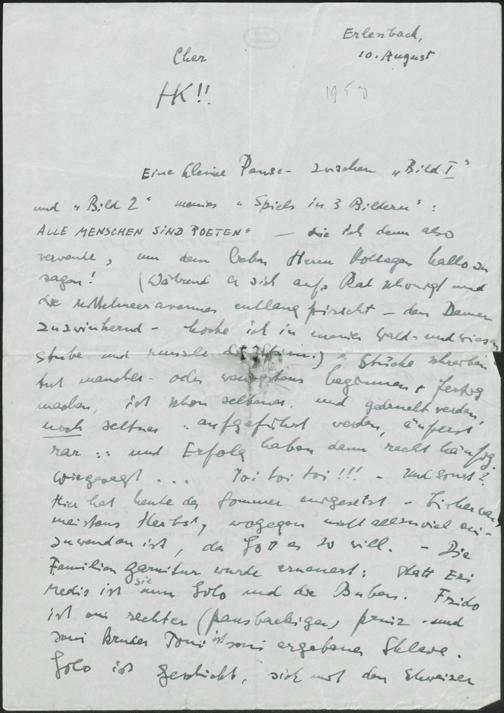 Erlenbach,
10. August
Cher
HK!!
1950
Eine kleine Pause - zwischen „Bild I“
und „Bild 2“ meines „Spiels in 3 Bildern“:
ALLE MENSCHEN SIND POETEN“ — die ich denn also
verwende, um dem lieben Herrn Kollegen hallo zu
sagen! (Während er sich aufs Rad schwingt und
die entlang pirscht - den Damen
zuzwinkernd - hocke ich in meiner Wald- und Wiesen-
stube und runzle die Stirn.) Stücke schreiben
tut mancher - oder wenigstens beginnen, fertig
machen, ist schon seltener. und gedruckt werden,
noch seltner . aufgeführt werden, äußerst
rar .: und Erfolg haben dann recht häufig.
Wiegesagt ... Toi toi toi!!! - Und sonst?
Hier hat heute der Sommer eingesetzt - bisher war
meistens Herbst, wogegen nicht allzuviel ein-
zuwenden ist, da Gott es so will. - Die
Familien garnitur wurde erneuert: statt Eri
Medis ist sie nun Golo und die Buben. Frido
ist ein rechter (pausbackiger) Prinz - und
sein Bruder Toni ist sein ergebener Sklave.
Golo ist geschickt, sich mit den Schweizer